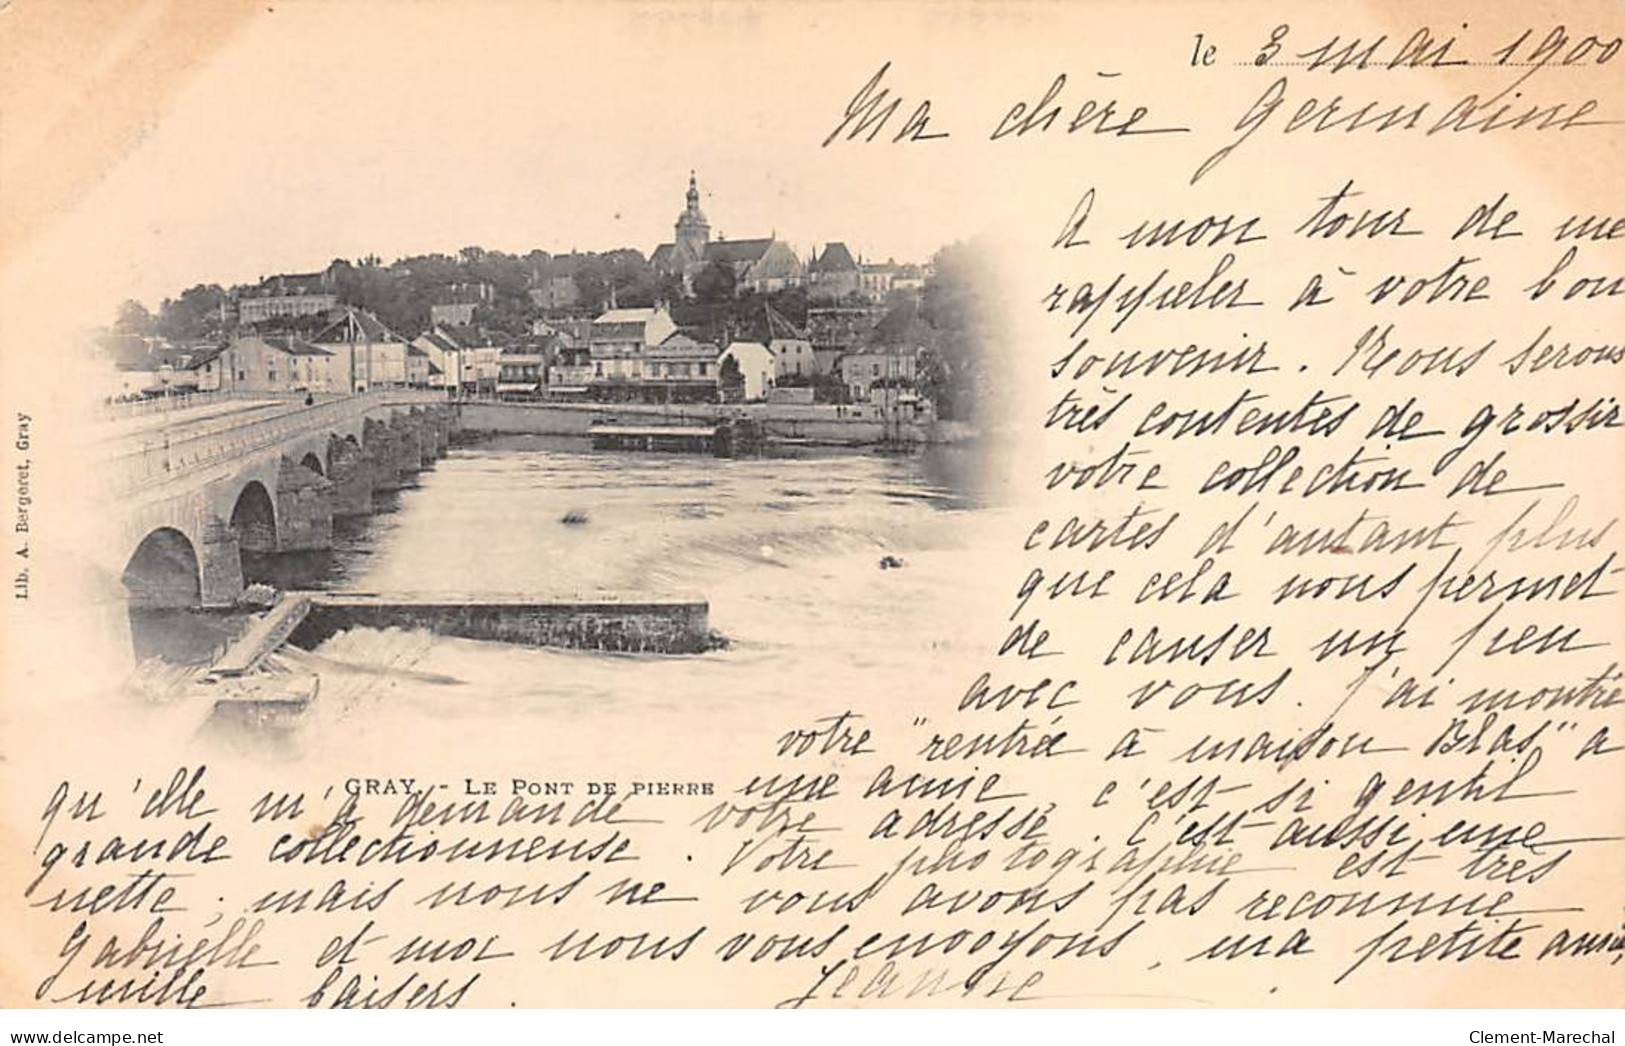 le 3 mai 1900
Ma chère Germaine
A mon tour de me
rappeler à votre bon
souvenir. Nous serons
très contentes de grossir
votre collection de
cartes d'autant plus
que cela nous permet
de causer un peu
avec vous. J'ai montré
votre "rentrée à maison Blas" a
une amie, c'est si gentil
qu'elle m'a demandé votre adresse. C'est aussi une
grande collectionneuse. Votre photographie est très
nette, mais nous ne vous avons pas reconnue
Gabrielle et moi nous vous envoyons, ma petite amie,
mille baisers. Jeanne
GRAY. - LE PONT DE PIERRE
Lib. A. Bergeret, Gray
www.delcampe.net
Clement-Marechal